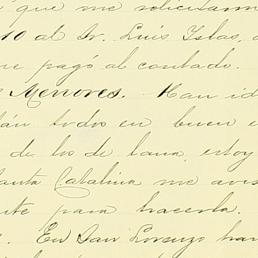 que me solicitaron
10 al Sr. Luis Islas,
me pagó al contado.
Menores. Han id
án todos en buen e
de los de lana, estoy
anta Catalina me avis
te para hacerla.
En San Lorenzo han